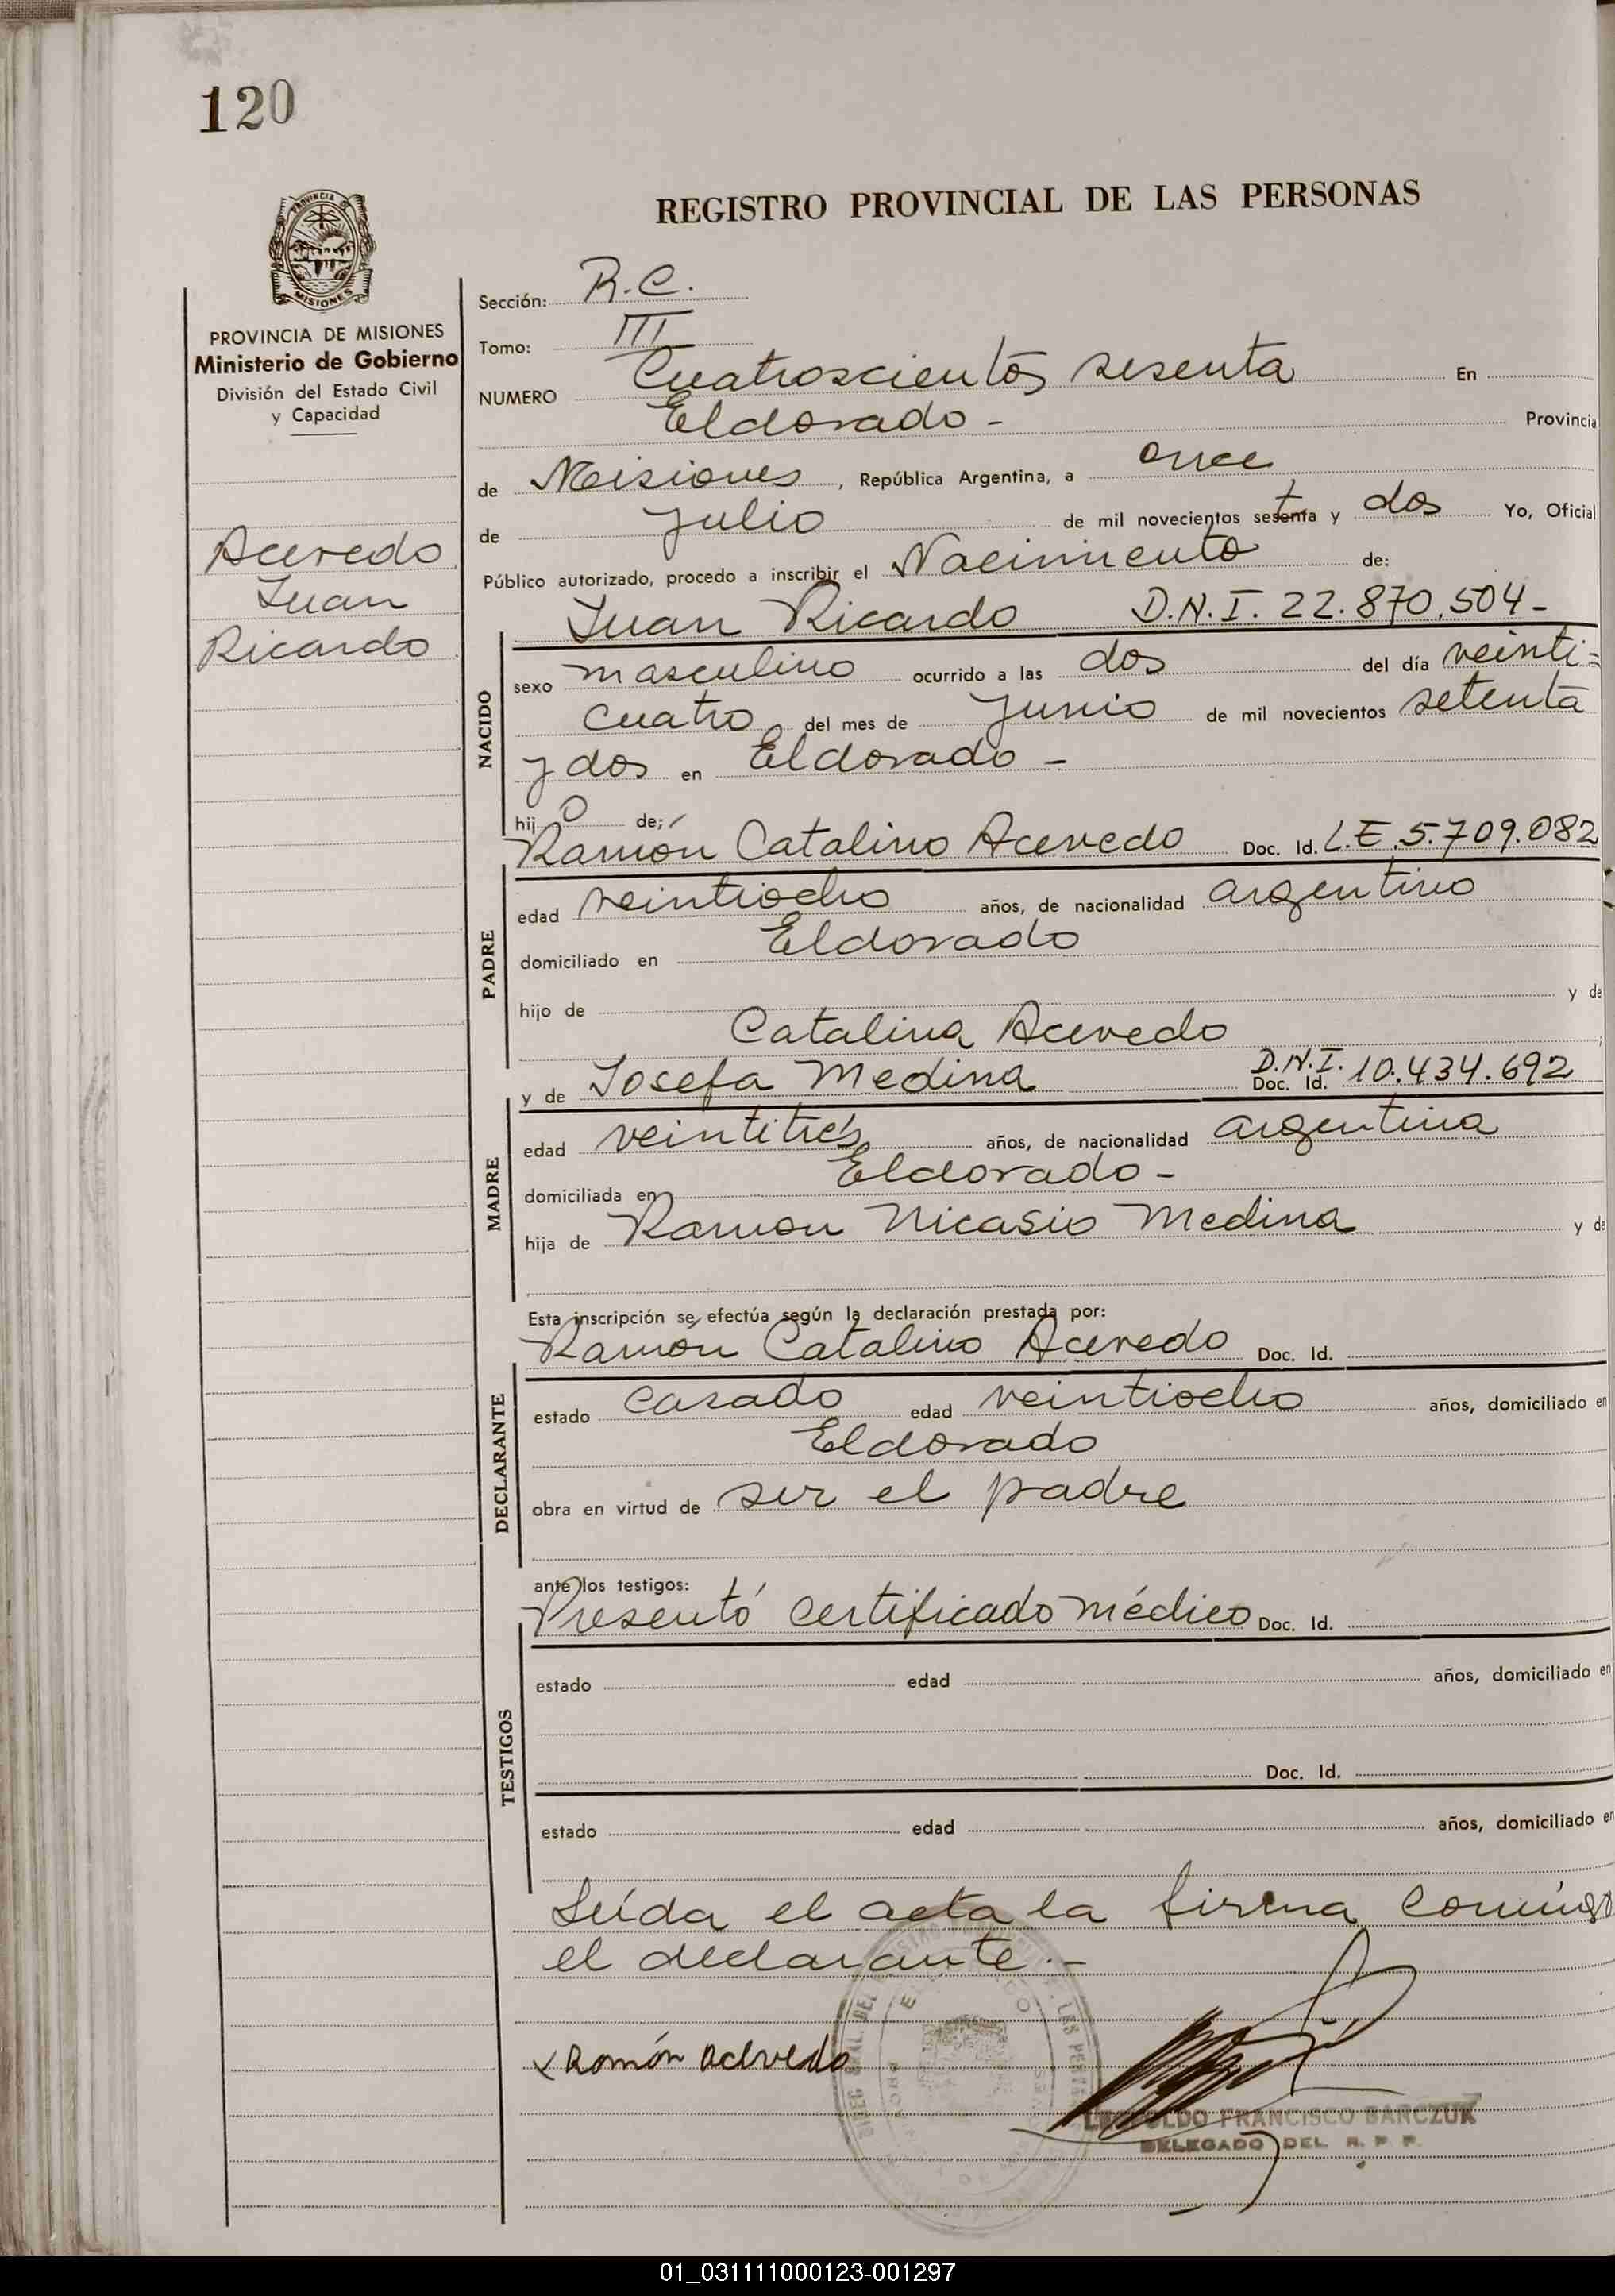 120
REGISTRO PROVINCIAL DE LAS PERSONAS
PROVINCIA
MISIONES
PROVINCIA DE MISIONES
Ministerio de Gobierno
División del Estado Civil
y Capacidad
Acevedo
Juan
Ricardo
Sección: R.C.
Tomo: III
NUMERO Cuatroscientos sesenta En
Eldorado - Provincia
de Misiones, República Argentina, a once
de julio de mil novecientos setenta y dos Yo, Oficial
Público autorizado, procedo a inscribir el Nacimiento de:
Juan Ricardo D.N.I. 22.870.504-
NACIDO
sexo masculino ocurrido a las dos del día veinti-
cuatro del mes de junio de mil novecientos setenta
y dos en Eldorado -
hijo de:
Ramón Catalino Acevedo Doc. Id. L.E. 5.709.082
PADRE
edad veintiocho años, de nacionalidad argentino
domiciliado en Eldorado
hijo de y de
Catalina Acevedo
y de Josefa Medina D.N.I. Doc. Id. 10.434.692
MADRE
edad veintitrés años, de nacionalidad argentina
domiciliada en Eldorado -
hija de Ramon Nicasio Medina y de
Esta inscripción se efectúa según la declaración prestada por:
Ramón Catalino Acevedo Doc. Id.
DECLARANTE
estado casado edad veintiocho años, domiciliado en
Eldorado
obra en virtud de ser el padre
ante los testigos:
Presentó certificado médico Doc. Id.
TESTIGOS
estado edad años, domiciliado en
Doc. Id.
estado edad años, domiciliado en
Leída el acta la firma conmigo
el declarante.-
x Ramón Acevedo
LEOPOLDO FRANCISCO BARCZUK
DELEGADO DEL R. P. P.
01_031111000123-001297